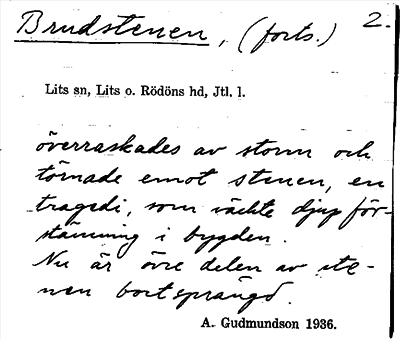 Brudstenen, (forts.) 2.
Lits sn, Lits o. Rödöns hd, Jtl. l.
överraskades av storm och
törnade emot stenen, en
tragedi, som väckte djup för-
stämning i bygden.
Nu är övre delen av ste-
nen bortsprängd.
A. Gudmundson 1936.